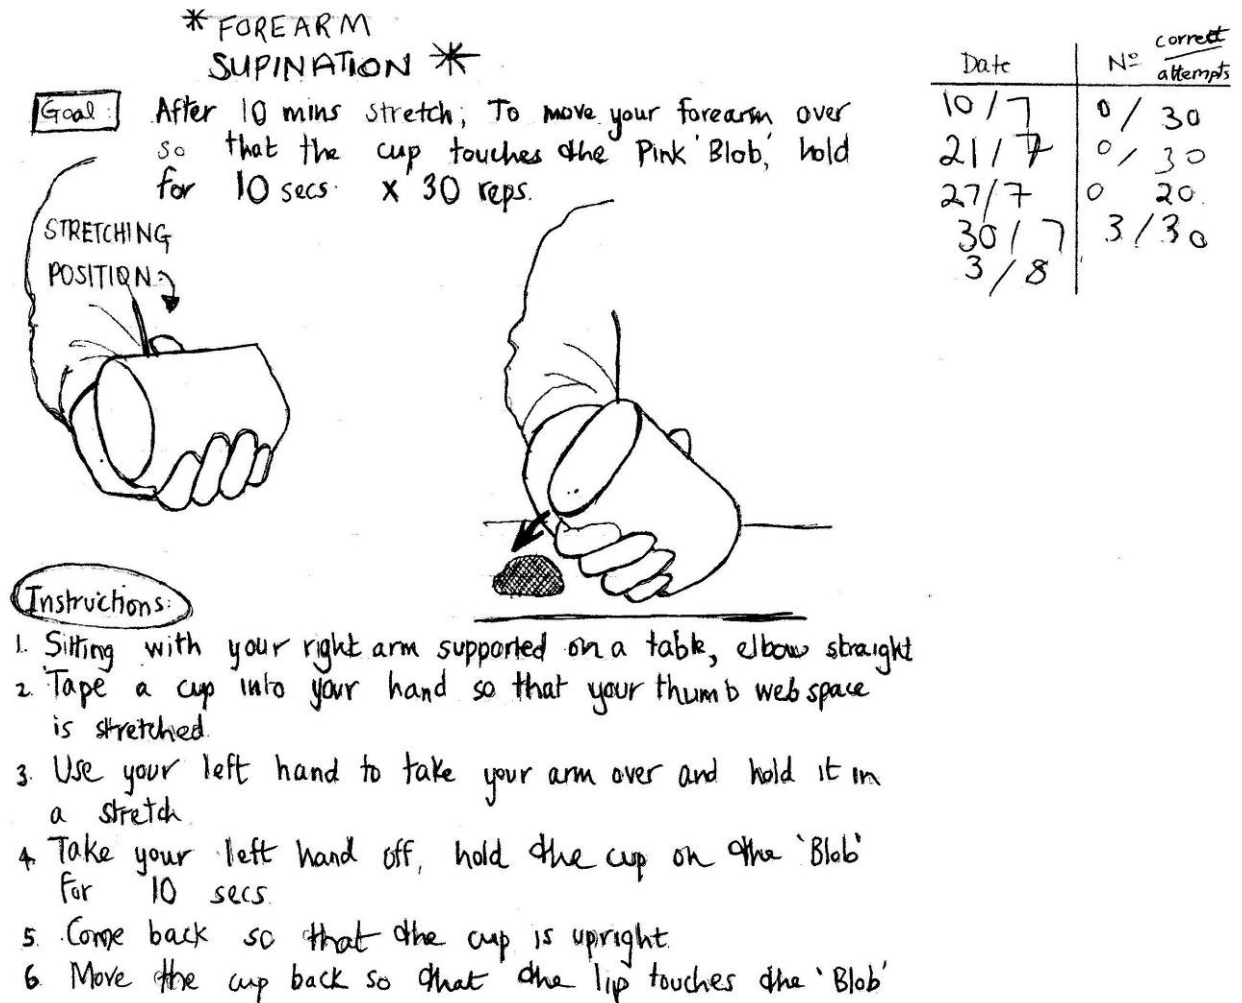 * FOREARM
SUPINATION *
Goal: After 10 mins stretch; To move your forearm over
so that the cup touches the Pink 'Blob', hold
for 10 secs. x 30 reps.
STRETCHING
POSITION
Date Nº correct/attempts
10/7 0/30
21/7 0/30
27/7 0 20
30/7 3/30
3/8
Instructions:
1. Sitting with your right arm supported on a table, elbow straight
2. Tape a cup into your hand so that your thumb web space
is stretched.
3. Use your left hand to take your arm over and hold it in
a stretch.
4. Take your left hand off, hold the cup on the 'Blob'
for 10 secs.
5. Come back so that the cup is upright.
6. Move the cup back so that the lip touches the 'Blob'